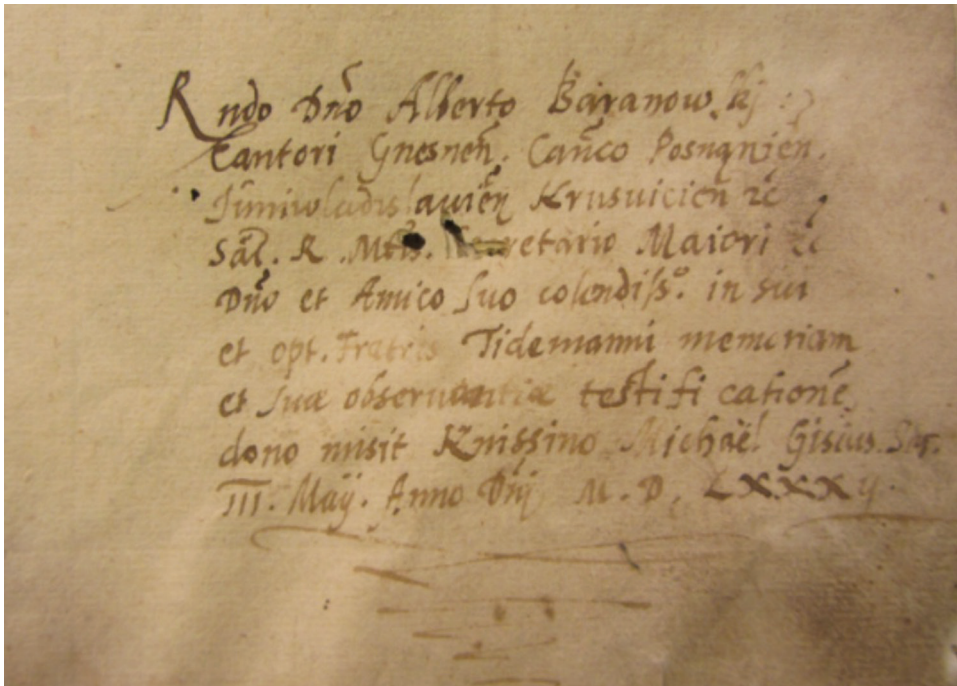 Rndo Dño Alberto Baranowskj
Cantori Gnesneñ. Cañco Posnanień.
Iuniuoladislauień Krusuicień
Sac. R. Mtis. Secretario Maiori
Dño et Amico suo colendiss°. in sui
et opt. Fratris Tidemanni memoriam
et suæ obseruantiæ testificationē
dono misit Knissino Michaël Gisius
III. Maÿ. Anno Dñj M. D. LXXXij.